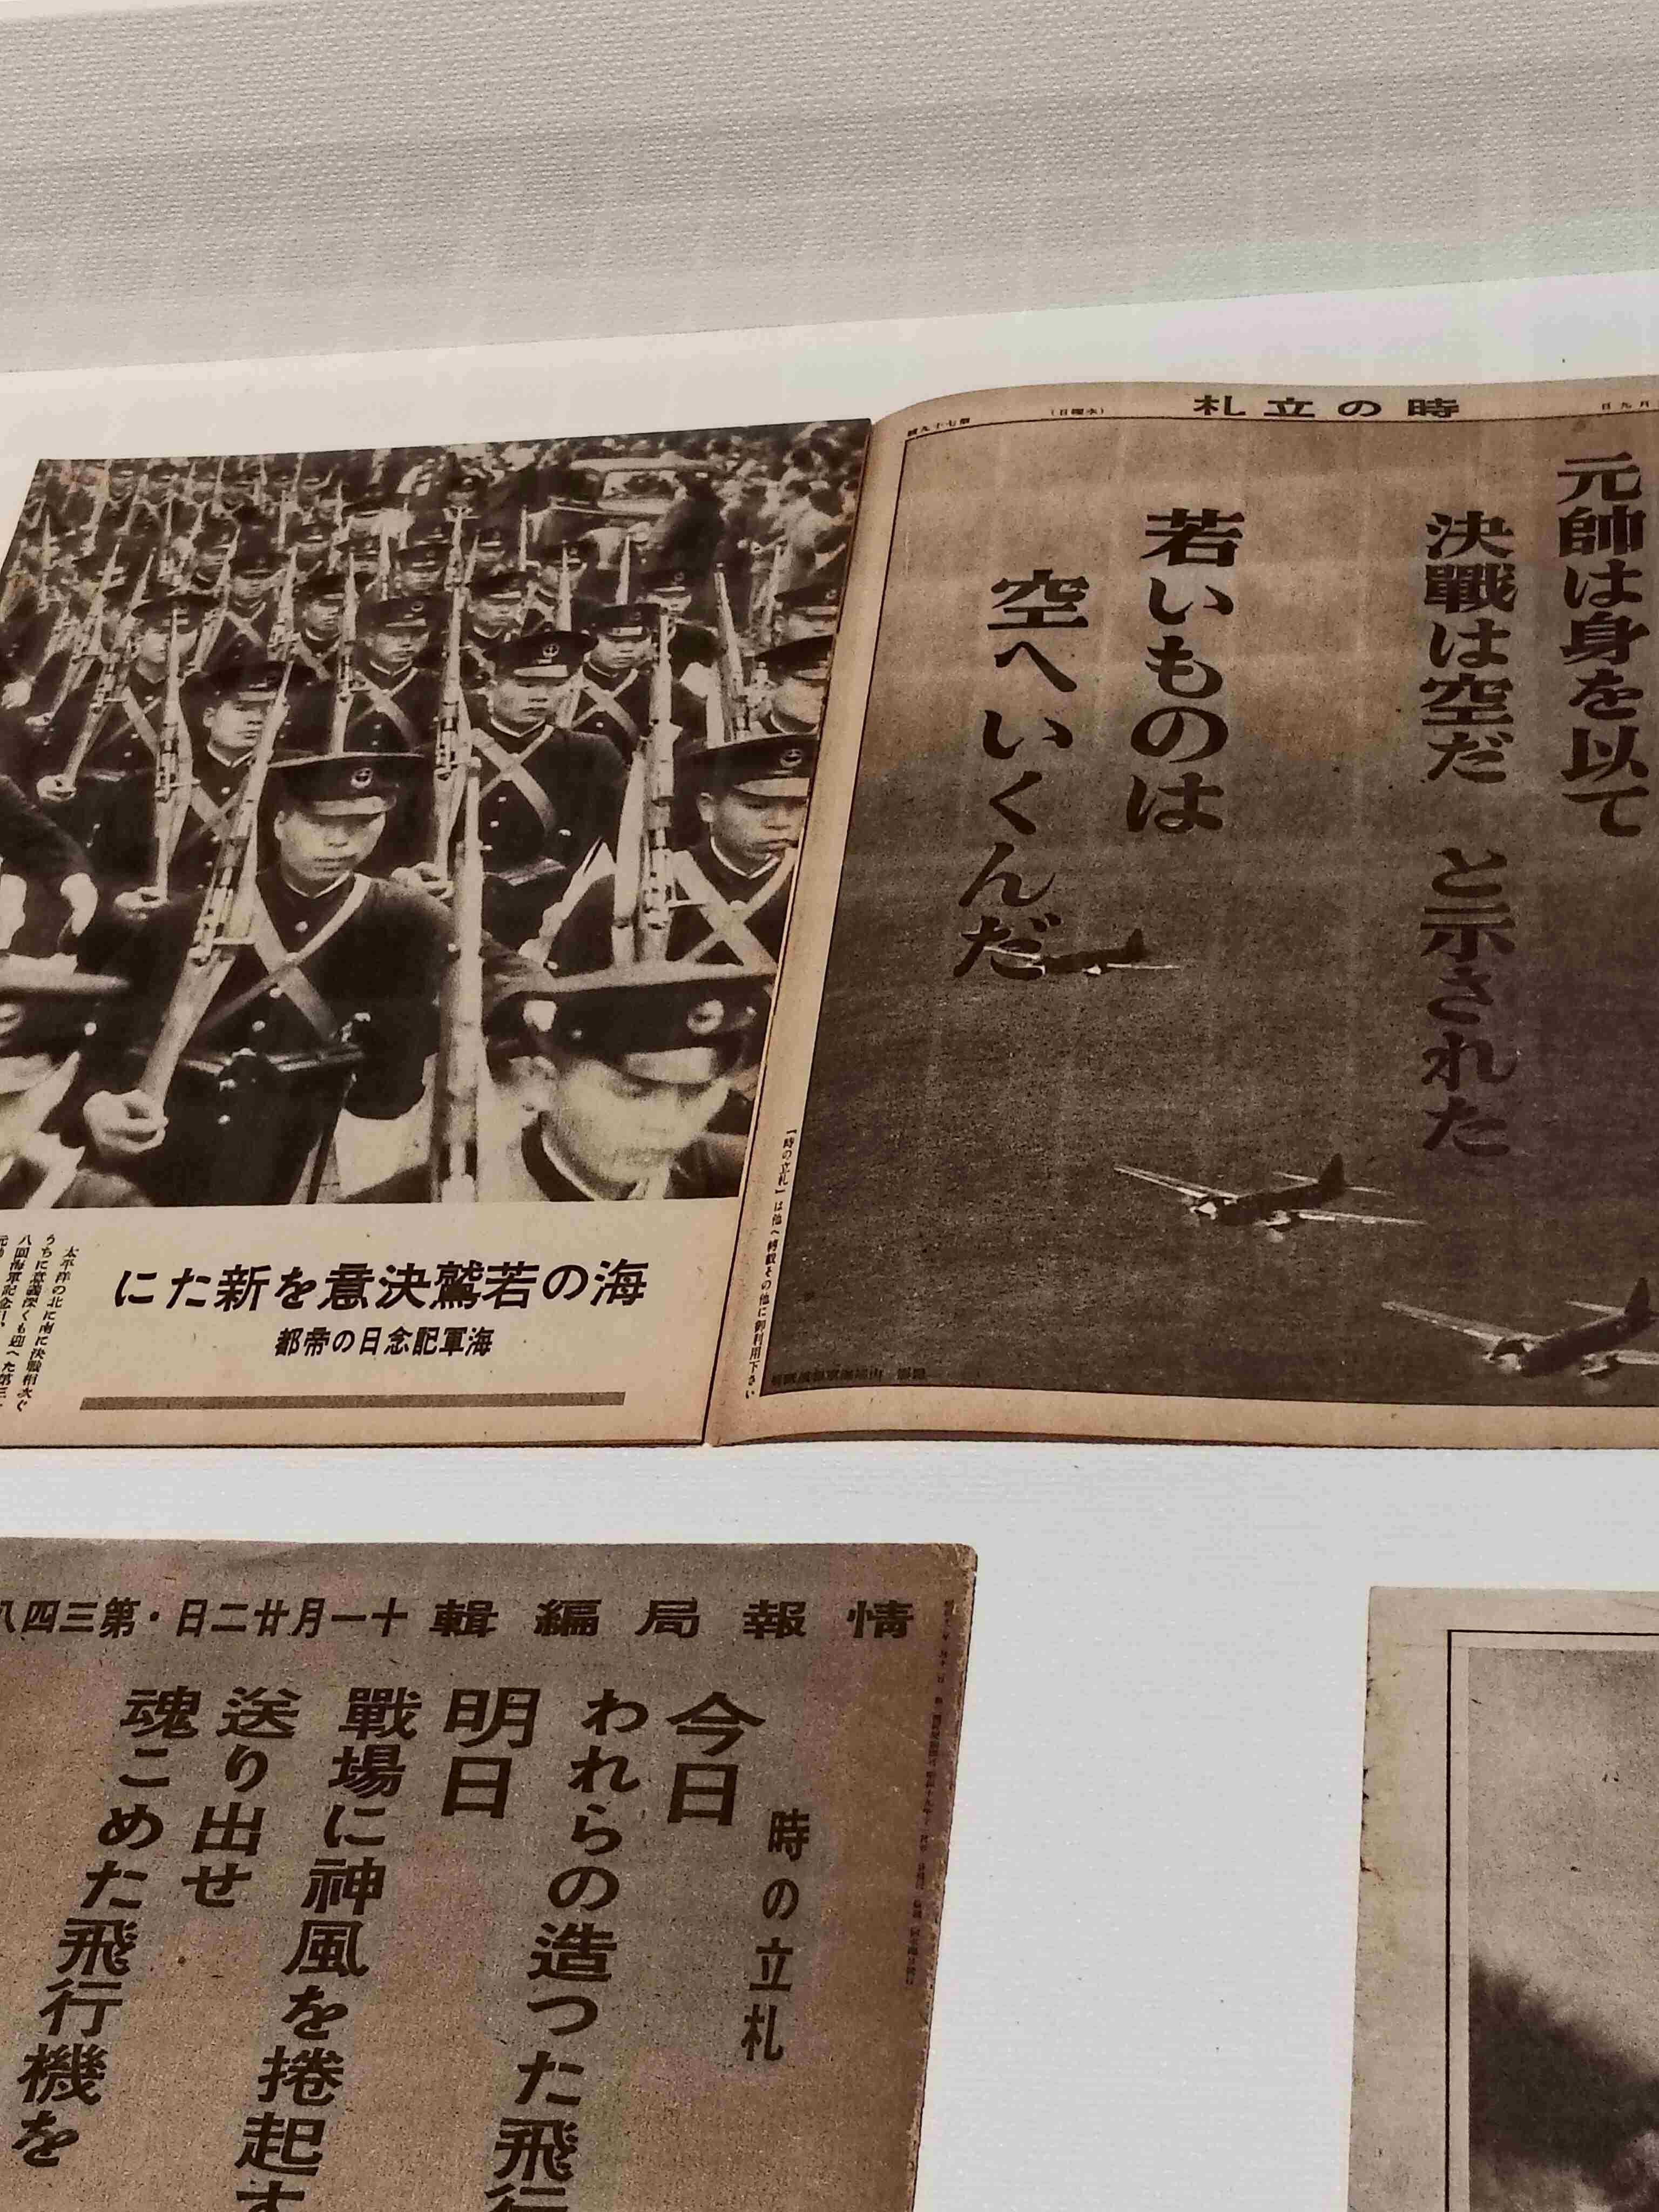 時の立札
(水曜日)
元帥は身を以て
決戰は空だ と示された
若いものは
空へいくんだ
『時の立札』は他へ轉載その他に御利用下さい
海の若鷲決意を新たに
海軍記念日の帝都
太平洋の北に南に決戰相次ぐ
うちに意義深くも迎へた第三
八回海軍記念日、
情報局編輯 十一月廿二日・第三四八
時の立札
今日
われらの造つた飛行
明日
戰場に神風を捲起す
送り出せ
魂こめた飛行機を